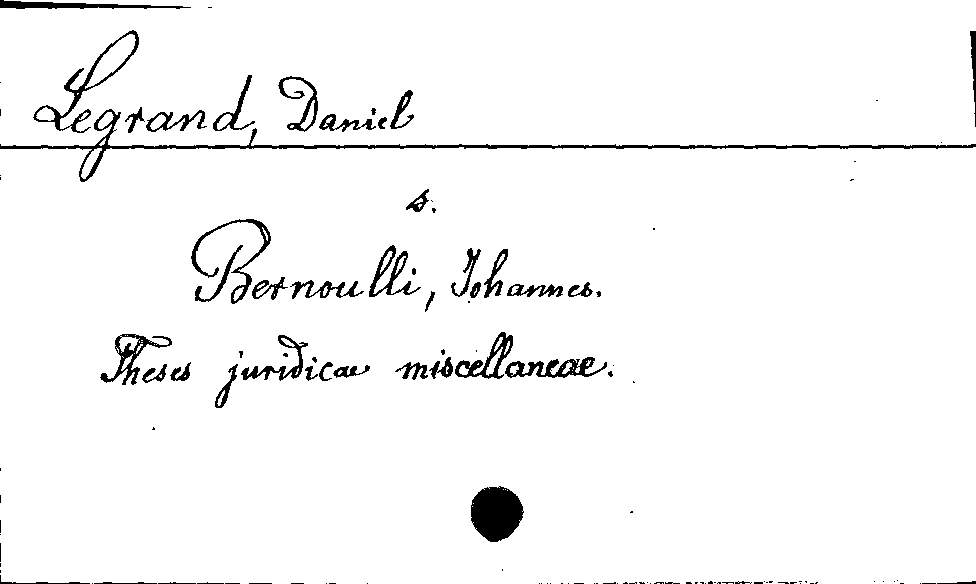 Legrand, Daniel
s.
Bernoulli, Johannes.
Theses juridicae miscellaneae.